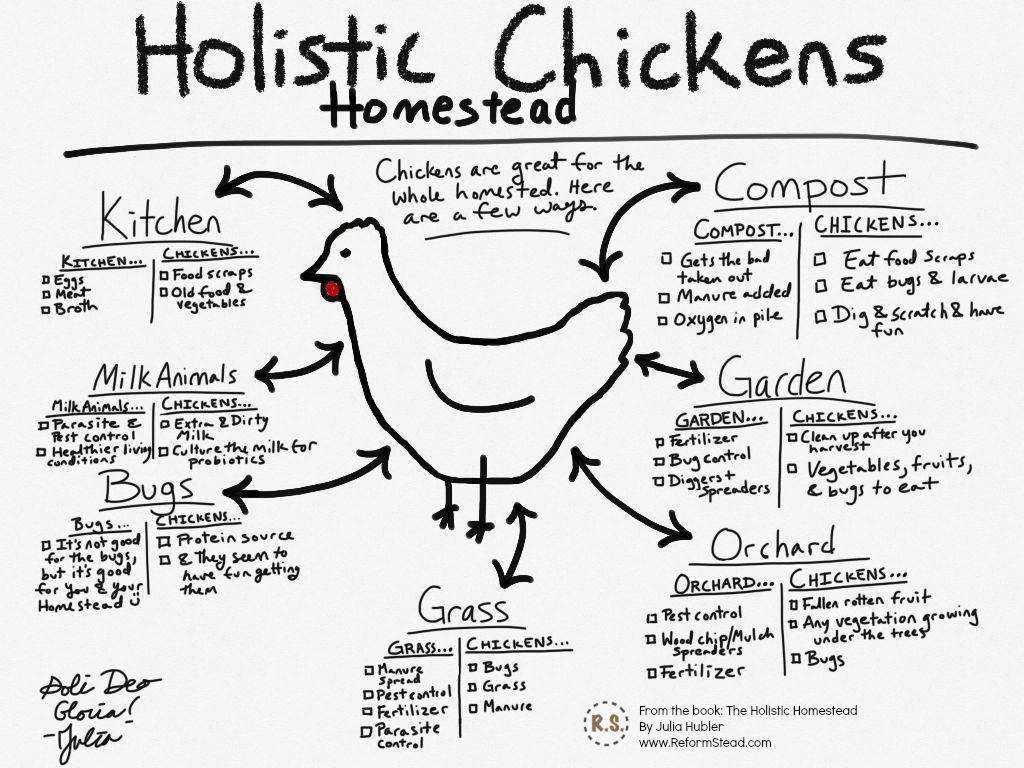 Holistic Chickens
Homestead
Chickens are great for the
whole homested. Here
are a few ways.
Kitchen
KITCHEN...
Eggs
Meat
Broth
CHICKENS...
Food scraps
Old food &
vegetables
Milk Animals
Milk Animals...
Parasite &
Pest control
Healthier living
conditions
CHICKENS...
Extra & Dirty
Milk
Culture the milk for
probiotics
Bugs
Bugs...
It's not good
for the bugs,
but it's good
for you & your
Homestead
CHICKENS...
Protein source
& They seem to
have fun getting
them
Grass
GRASS...
Manure
spread
Pest control
Fertilizer
Parasite
control
CHICKENS...
Bugs
Grass
Manure
Compost
COMPOST...
Gets the bad
taken out
Manure added
Oxygen in pile
CHICKENS...
Eat food scraps
Eat bugs & larvae
Dig & scratch & have
fun
Garden
GARDEN...
Fertilizer
Bug control
Diggers +
Spreaders
CHICKENS...
Clean up after you
harvest
Vegetables, fruits,
& bugs to eat
Orchard
ORCHARD...
Pest control
Wood chip/Mulch
Spreaders
Fertilizer
CHICKENS...
Fallen rotten fruit
Any vegetation growing
under the trees
Bugs
Soli Deo
Gloria!
-Julia
R.S.
From the book: The Holistic Homestead
By Julia Hubler
www.ReformStead.com